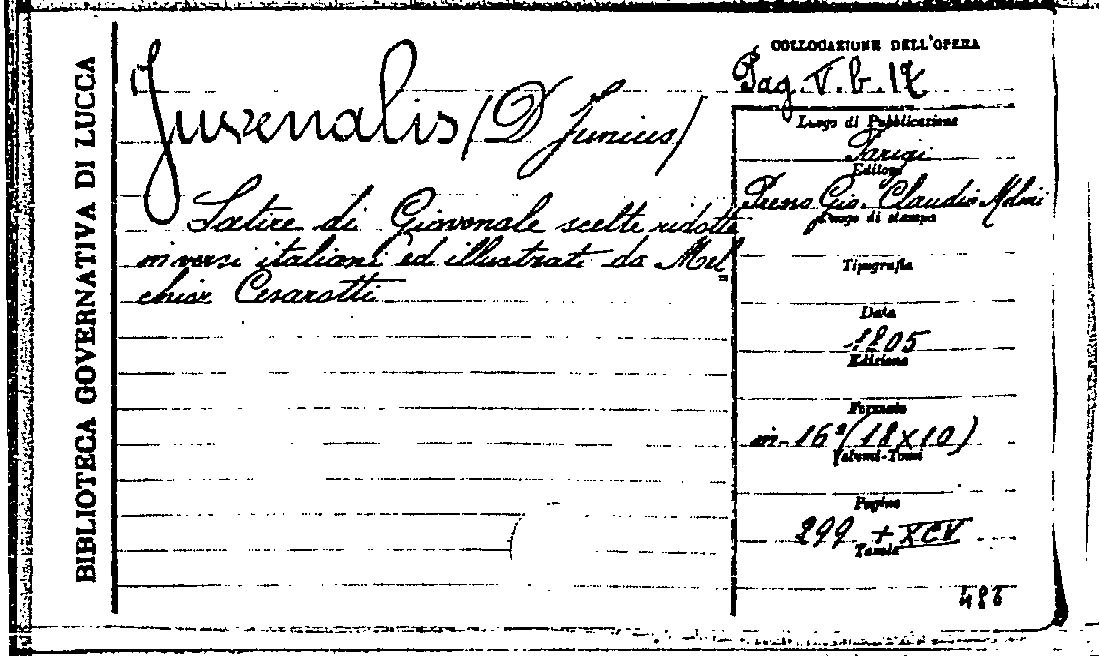 BIBLIOTECA GOVERNATIVA DI LUCCA
Juvenalis (D Junius)
Satire di Giovenale scelte ridotte
in versi italiani ed illustrate da Mel=
chior Cesarotti
COLLOCAZIONE DELL'OPERA
Pag. V. b. 17
Luogo di Pubblicazione
Parigi
Editore
Presso Gio. Claudio Molini
Luogo di stampa
Tipografia
Data
1805
Edizione
Formato
in-16° (18x10)
Volumi-Tomi
Pagine
299 + XCV
Tavole